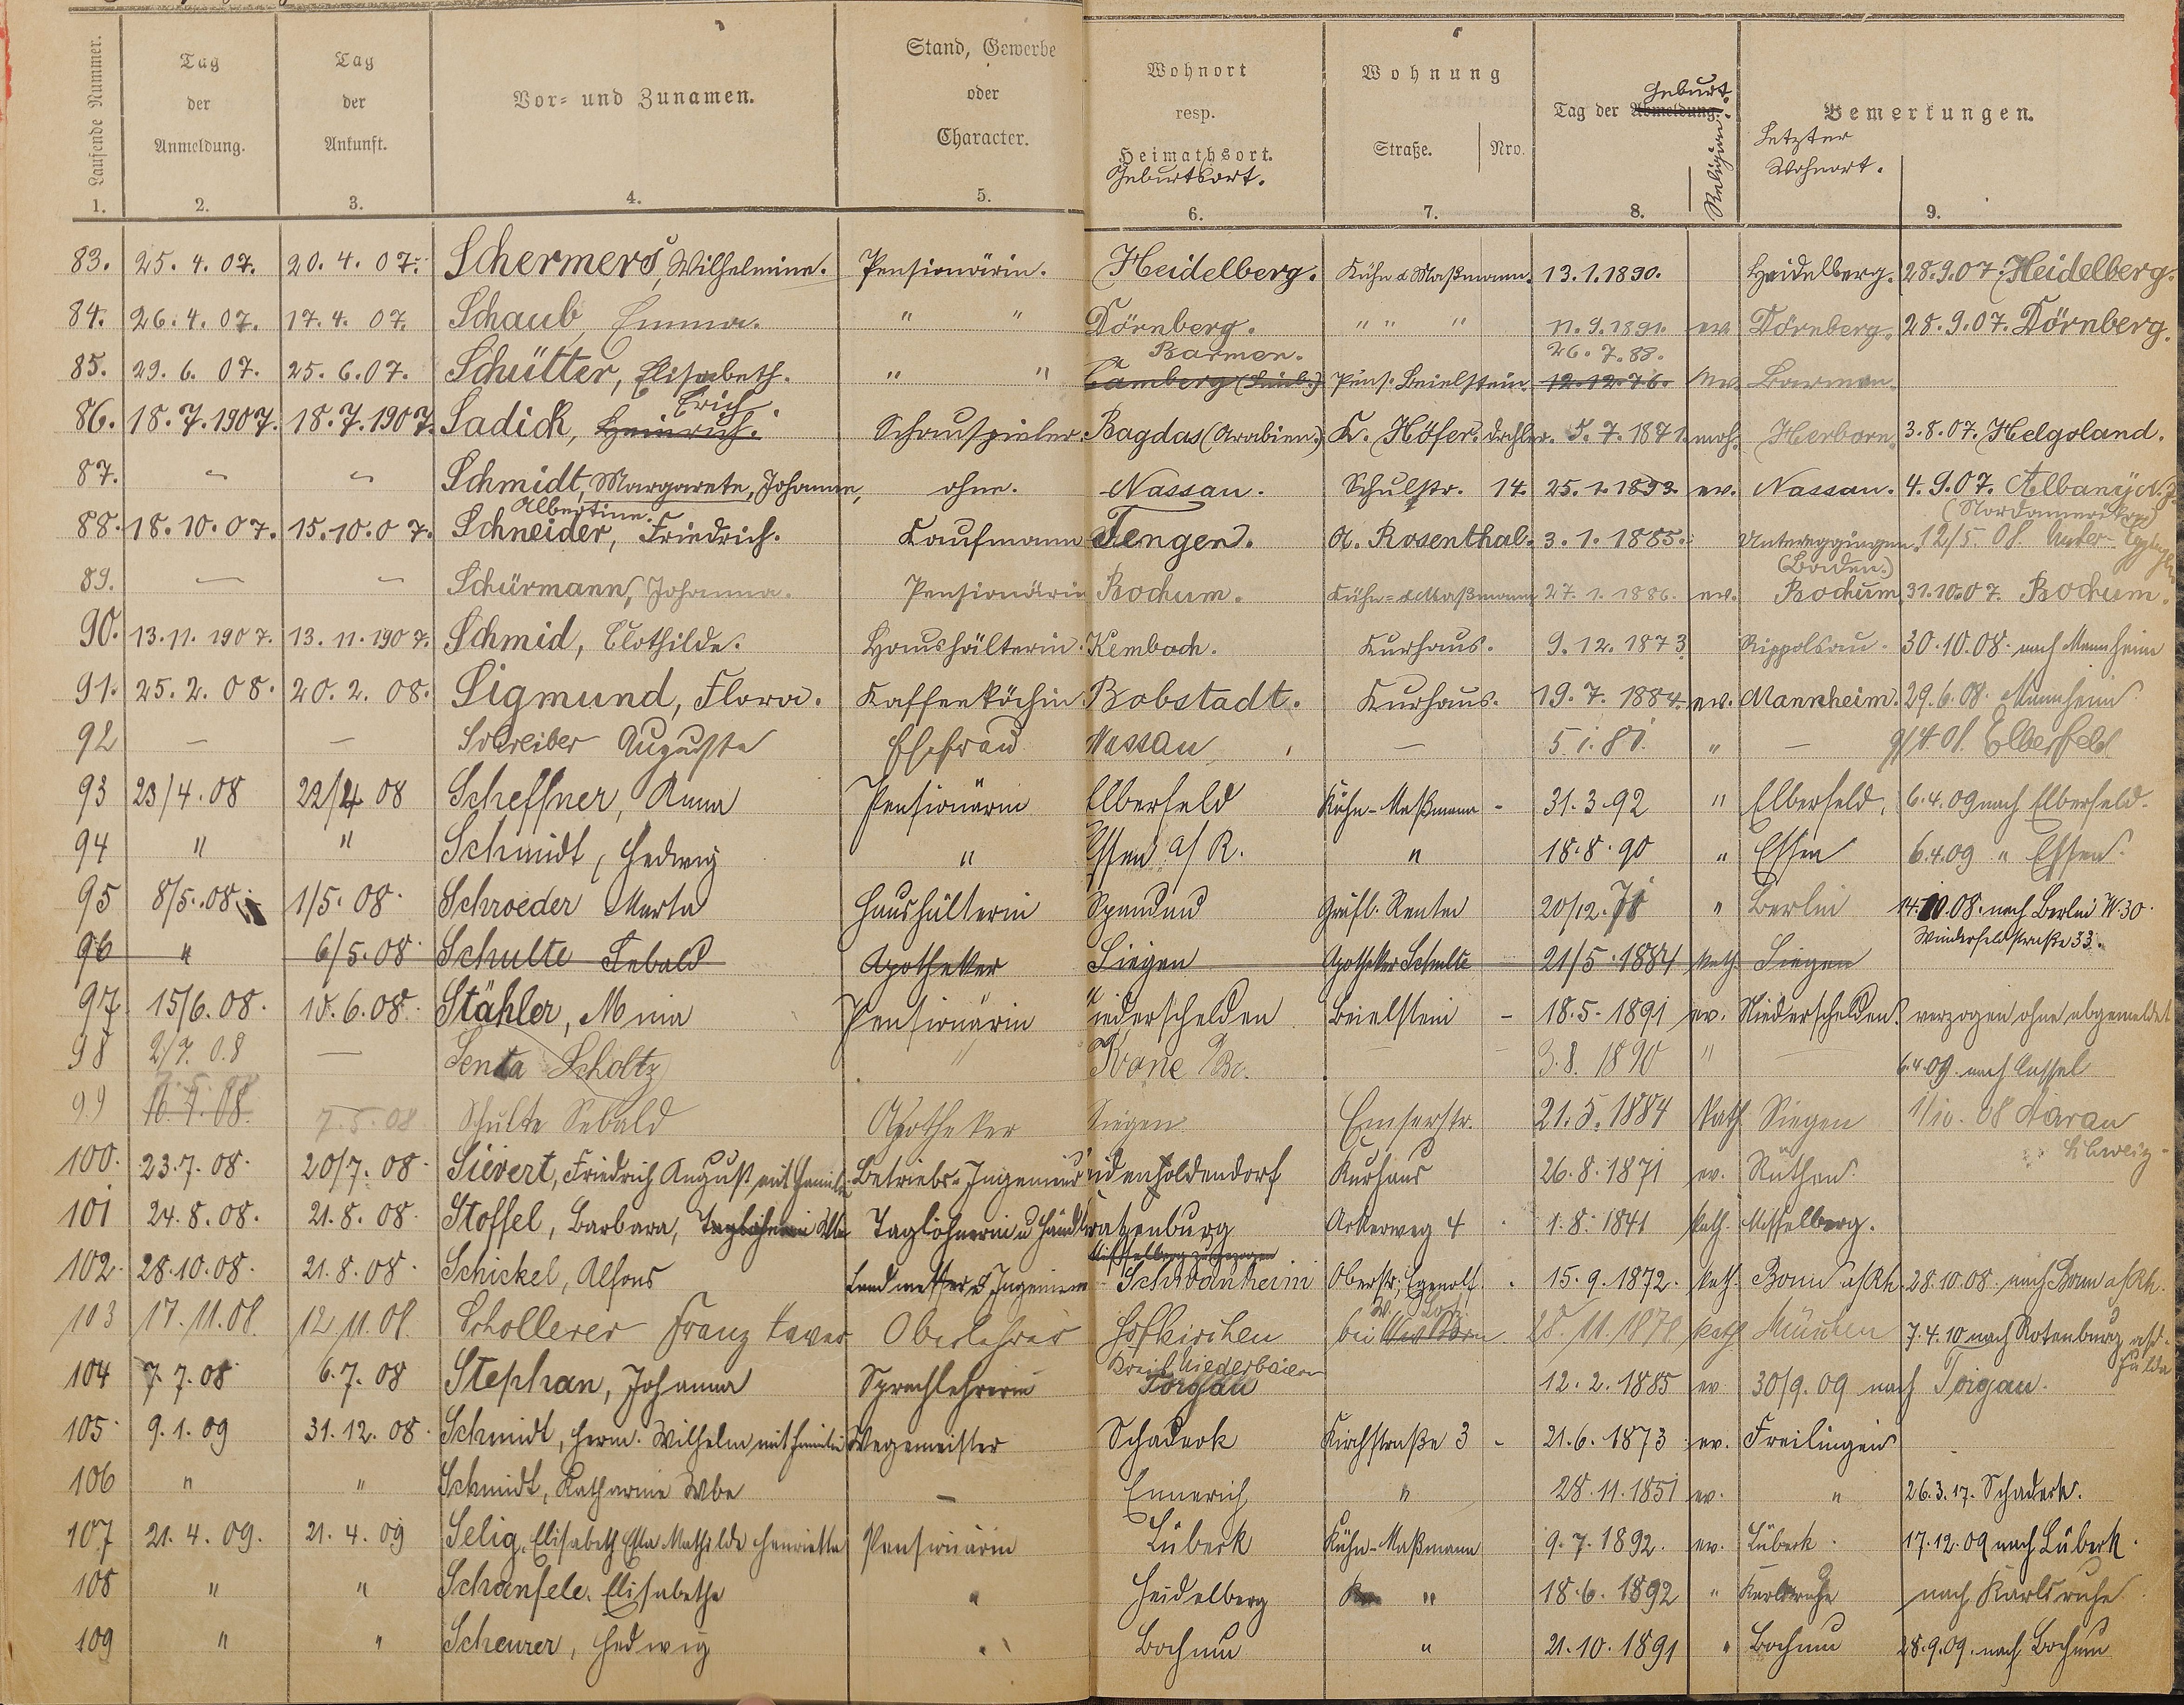 Laufende Nummer. Tag der Anmeldung. Tag der Ankunft. Vor= und Zunamen. Stand, Gewerbe oder Character. Wohnort resp. Heimathsort. Geburtsort. Wohnung Straße. Nro. Tag der Abmeldung. Geburt. Religion. Bemerkungen. Letzter Wohnort.
1. 2. 3. 4. 5. 6. 7. 8. 9.
83. 25. 4. 07. 20. 4. 07. Schermers, Wilhelmine. Pensionärin. Heidelberg. Kühn & Maßmann. 13. 1. 1890. Heidelberg. 28. 9. 07. Heidelberg.
84. 26. 4. 07. 17. 4. 07. Schaub, Emma. " " Dörnberg. " " " 11. 9. 1891. ev. Dörnberg. 28. 9. 07. Dörnberg.
Barmen. 26. 7. 88.
85. 29. 6. 07. 25. 6. 07. Schütter, Elisabeth. " " Camberg Pens. Beielstein. 12. 12. 76. ev. Barmen.
Erich.
86. 18. 7. 1907. 18. 7. 1907. Sadick, Heinrich. Schauspieler. Bagdas (Arabien.) K. Höfer. 5. 7. 1871. moh. Herborn. 3. 8. 07. Helgoland.
87. " " Schmidt, Margarete, Johanne, ohne. Nassau. Schulstr. 14. 25. 1. 1893. ev. Nassau. 4. 9. 07.
Albertine. (Nordamerika)
88. 18. 10. 07. 15. 10. 07. Schneider, Friedrich. Kaufmann Tengen. A. Rosenthal. 3. 1. 1885. Untereggingen. 12/5. 08.
(Baden.)
89. — — Schürmann, Johanna. Pensionärin Bochum. Kühn= & Maßmann 27. 1. 1886. ev. Bochum 31. 10. 07. Bochum.
90. 13. 11. 1907. 13. 11. 1907. Schmid, Clothilde. Haushälterin. Kembach. Kurhaus. 9. 12. 1873. Rippolsau. 30. 10. 08. nach Mannheim
91. 25. 2. 08. 20. 2. 08. Sigmund, Flora. Kaffeeköchin. Bobstadt. Kurhaus. 19. 7. 1884. ev. Mannheim. 29. 6. 08. Mannheim
92 — — Schreiber Auguste Ehefrau Nassau — 5. 1. 81. " — 9/4. 08. Elberfeld
93 23/4. 08 22/4 08 Scheffner, Anna Pensionärin Elberfeld Kühn-Maßmann - 31. 3. 92 " Elberfeld. 6. 4. 09 nach Elberfeld.
94 " " Schmidt, Hedwig " Essen a/R. " 18. 8. 90 " Essen 6. 4. 09 " Essen.
95 8/5. 08. 1/5. 08. Schroeder Marta Haushälterin Spandau Gräfl. 20/12. " Berlin 14. 10. 08. nach Berlin W. 30.
Winterfeldstraße 33.
96 " 6/5. 08. Schulte Sebald Apotheker Siegen Apotheker Schulte 21/5. 1884 kath. Siegen
97. 15/6. 08. 10. 6. 08. Stähler, Minna Pensionärin Niederschelden Beielstein - 18. 5. 1891 ev. Niederschelden. verzogen ohne abgemeldet
98 2/7. 08 — Senta Scholtz " 3. 8. 1890 " 6. 4. 09. nach Cassel
99 16. 7. 08. 7. 5. 08 Schulte Sebald Apotheker Siegen Emserstr. 21. 5. 1884 kath Siegen 1/10. 08 Aarau
Schweiz.
100. 23. 7. 08. 20/7. 08. Sievert, Friedrich August mit Familie. Betriebs-Ingenieur Kurhaus 26. 8. 1871 ev. Rüthen.
101 24. 8. 08. 21. 8. 08. Stoffel, Barbara, Taglöhnerin Wwe Taglöhnerin u. Ackerweg 4 1. 8. 1841 kath. Misselberg.
Misselberg zugezogen
102. 28. 10. 08. 21. 8. 08. Schickel, Alfons Landmesser & Ingenieur Schwanheim Oberstr., Egenolf. 15. 9. 1872. kath. Bonn a/Rh. 28. 10. 08. nach Bonn a/Rh.
103 17. 11. 08. 12 11. 08. Schollerer Franz Xaver Oberlehrer Hofkirchen bei 28. 11. 1878 kath München 7. 4. 10 nach Rotenburg a/d.
Kreis Niederbaiern Fulda
104 7. 7. 08 6. 7. 08 Stephan, Johanna Sprachlehrerin Torgau 12. 2. 1885 ev 30/9. 09 nach Torgau.
105 9. 1. 09 31. 12. 08. Schmidt, Herm. Wilhelm mit Familie Wegemeister Schadeck Kirchstraße 3 - 21. 6. 1873 ev. Freilingen -
106 " " Schmidt, Katharine Wwe — Ennerich " 28. 11. 1851 ev. " 26. 3. 17. Schadeck.
107 21. 4. 09. 21. 4. 09 Selig, Elisabeth Ella Mathilde Henriette Pensionärin Lübeck Kühn-Maßmann 9. 7. 1892. ev. Lübeck. 17. 12. 09 nach Lübeck.
108 " " Schoenfele. Elisabethe " Heidelberg " 18. 6. 1892 " Karlsruhe nach Karlsruhe
109 " " Scheurer, Hedwig " Bochum " 21. 10. 1891 " Bochum 28. 9. 09. nach Bochum